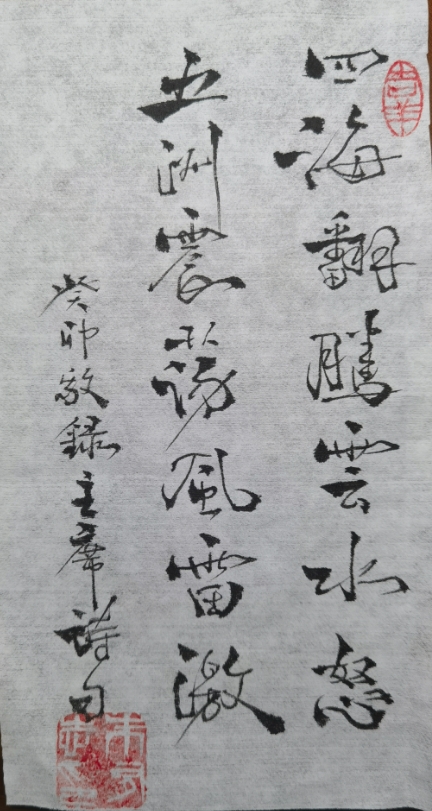 四海翻騰雲水怒
五洲震蕩風雷激
癸卯敬録主席詩句